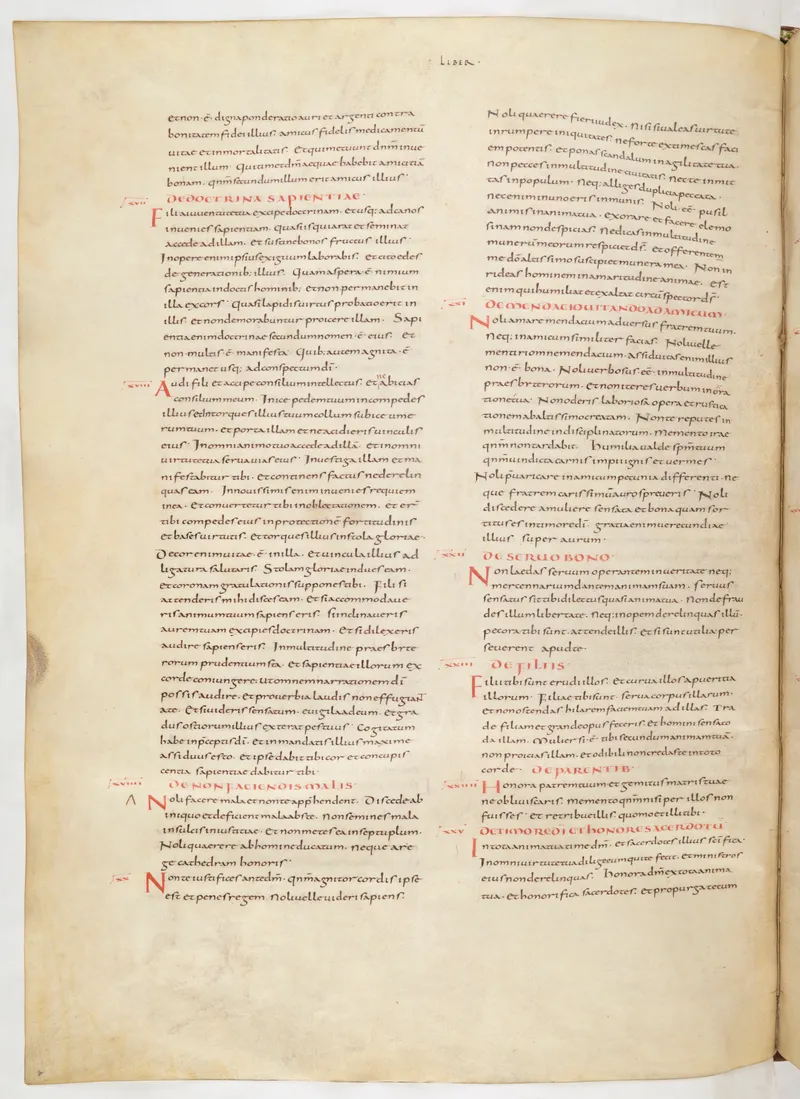 · LIBER ·
et non · ē · digna ponderatio auri et argenti contra
bonitatem fidei illius · amicus fidelis medicamentū
uitae et inmortalitatis · Et qui metuunt dnm̄ inue
nient illum · Qui timet dm̄ aeque habebit amicitiā
bonam · qnm̄ secundum illum erit amicus illius ·
xvii DE DOCTRINA SAPIENTIAE ·
Fili a iuuentute tua excipe doctrinam · et usq; ad canos
inuenies sapientiam · quasi is qui arat et seminat
accede ad illam · et sustine bonos fructus illius ·
In opere enim ipsius exiguum laborabis · et cito edes
de generationib; illius · Quam aspera · ē · nimium
sapientia indoctis hominib; et non permanebit in
illa excors · Quasi lapidis uirtus probatio erit in
illis · et non demorabuntur proicere illam · Sapi
entia enim doctrinae secundum nomen · ē · eius · et
non multis · ē · manifesta · Quib; autem agnita · ē ·
permanet usq; ad conspectum di ·
xviii Audi fili et accipe consilium intellectus · et ne abicias
consilium meum · Inice pedem tuum in compedes
illius et in torques illius tuum collum · subice ume
rum tuum · et porta illam et ne acidieris uinculis
eius · In omni animo tuo accede ad illā · et in omni
uirtute tua serua uias eius · Inuestiga illam et ma
nifestabitur tibi · et continens factus ne derelin
quas eam · In nouissimis enim inuenies requiem
in ea · et conuertetur tibi in oblectationem · et er̄
tibi compedes eius in protectionē fortitudinis
et bases uirtutis · et torques illius in stola gloriae ·
Decor enim uitae · ē · in illa · et uincula illius ad
ligatura salutaris · Stolam gloriae indues eam ·
et coronam gratulationis suppones tibi · Fili si
attenderis mihi disces eam · et si accommodaue
ris animum tuum sapiens eris · si inclinaueris
aurem tuam excipies doctrinam · Et si dilexeris
audire sapiens eris · In multitudine praesbyte
rorum prudentium sta · et sapientiae illorum ex
corde coniungere · ut omnem narrationem di
possis audire · et prouerbia laudis non effugiant
a te · Et si uideris sensatum · euigila ad eum · et gra
dus ostiorum illius exterat pes tuus · Cogitatum
habe in p̄ceptis di · et in mandatis illius maxime
assiduus esto · et ipse dabit tibi cor et concupis
centia sapientiae dabitur tibi ·
xviiii DE NON FACIENDIS MALIS ·
Noli facere mala et non te app̄hendent · Discede ab
iniquo et deficient mala abs te · non semines mala
in sulcis iniustitiae · et non metes ea in septuplum ·
Noli quaerere ab homine ducatum · neque a re
ge cathedram honoris ·
xx Non te iustifices ante dm̄ · qnm̄ agnitor cordis ipse
est et penes regem · noli uelle uideri sapiens ·
Noli quaerere fieri iudex · nisi si ualeas uirtute
inrumpere iniquitates · ne forte extimescas faci
em potentis · et ponas scandalum in agilitate tua ·
non pecces in multitudine ciuitatis · nec te inmit
tas in populum · Neq; alliges duplicia peccata ·
nec enim in uno eris inmunis · Noli · eē · pusil
animis in anima tua · exorare et facere elemo
sinam non despicias · Ne dicas in multitudine
munerū meorum respiciet ds̄ · et offerentem
me dō altissimo suscipiet munera mea · Non in
rideas hominem in amaritudine animae · est
enim qui humiliat et exaltat circūspector ds̄ ·
xxi DE MENDACIO UITANDO AD AMICUM ·
Noli amare mendacium aduersus fratrem tuum ·
Neq; in amicum similiter facias · Noli uelle
mentiri omne mendacium · assiduitas enim illius
non · ē · bona · Noli uerbosus · eē · in multitudine
praesbyterorum · et non iteres uerbum in ora
tione tua · Non oderis laboriosa opera et rustica
tionem ab altissimo creatam · Non te reputes in
multitudine indisciplinatorum · memento irae
qnm̄ non tardabit · Humilia ualde spm̄ tuum
qnm̄ uindicta carnis impii ignis et uermes ·
Noli p̄uaricare in amicum pecunia differenti · ne
que fratrem carissimū auro spreueris · Noli
discedere a muliere sensata et bona quam sor
titus es in timore di · gratia enim uerecundiae
illius super aurum ·
xxii DE SERUO BONO ·
Non laedas seruum operantem in ueritate neq;
mercennarium dantem animam suam · seruus
sensatus sit tibi dilectus quasi anima tua · non defrau
des illum libertate · neq; inopem derelinquas illū ·
pecora tibi sunt · attende illis · et si sunt utilia per
seuerent apud te ·
xxiii DE FILIIS ·
Filii tibi sunt erudi illos · et curua illos a pueritia
illorum · Filiae tibi sunt · serua corpus illarum ·
et non ostendas hilarem faciem tuam ad illas · Tra
de filiam et grande opus feceris · et homini sensato
da illam · Mulier si · ē · tibi secundum animam tuā ·
non proicias illam · et odibili non credas te in toto
corde · DE PARENTIB ·
xxiiii Honora patrem tuum et gemitus matris tuae
ne obliuiscaris · memento qnm̄ nisi per illos non
fuisses · et retribue illis quomo et illi tibi ·
xxv DE TIMORE DI ET HONORE SACERDOTŪ
In tota anima tua time dm̄ · et sacerdotes illius scifica ·
In omni uirtute tua dilige eum qui te fecit · et ministros
eius non derelinquas · Honora dm̄ ex tota anima
tua · et honorifica sacerdotes · et propurga te cum